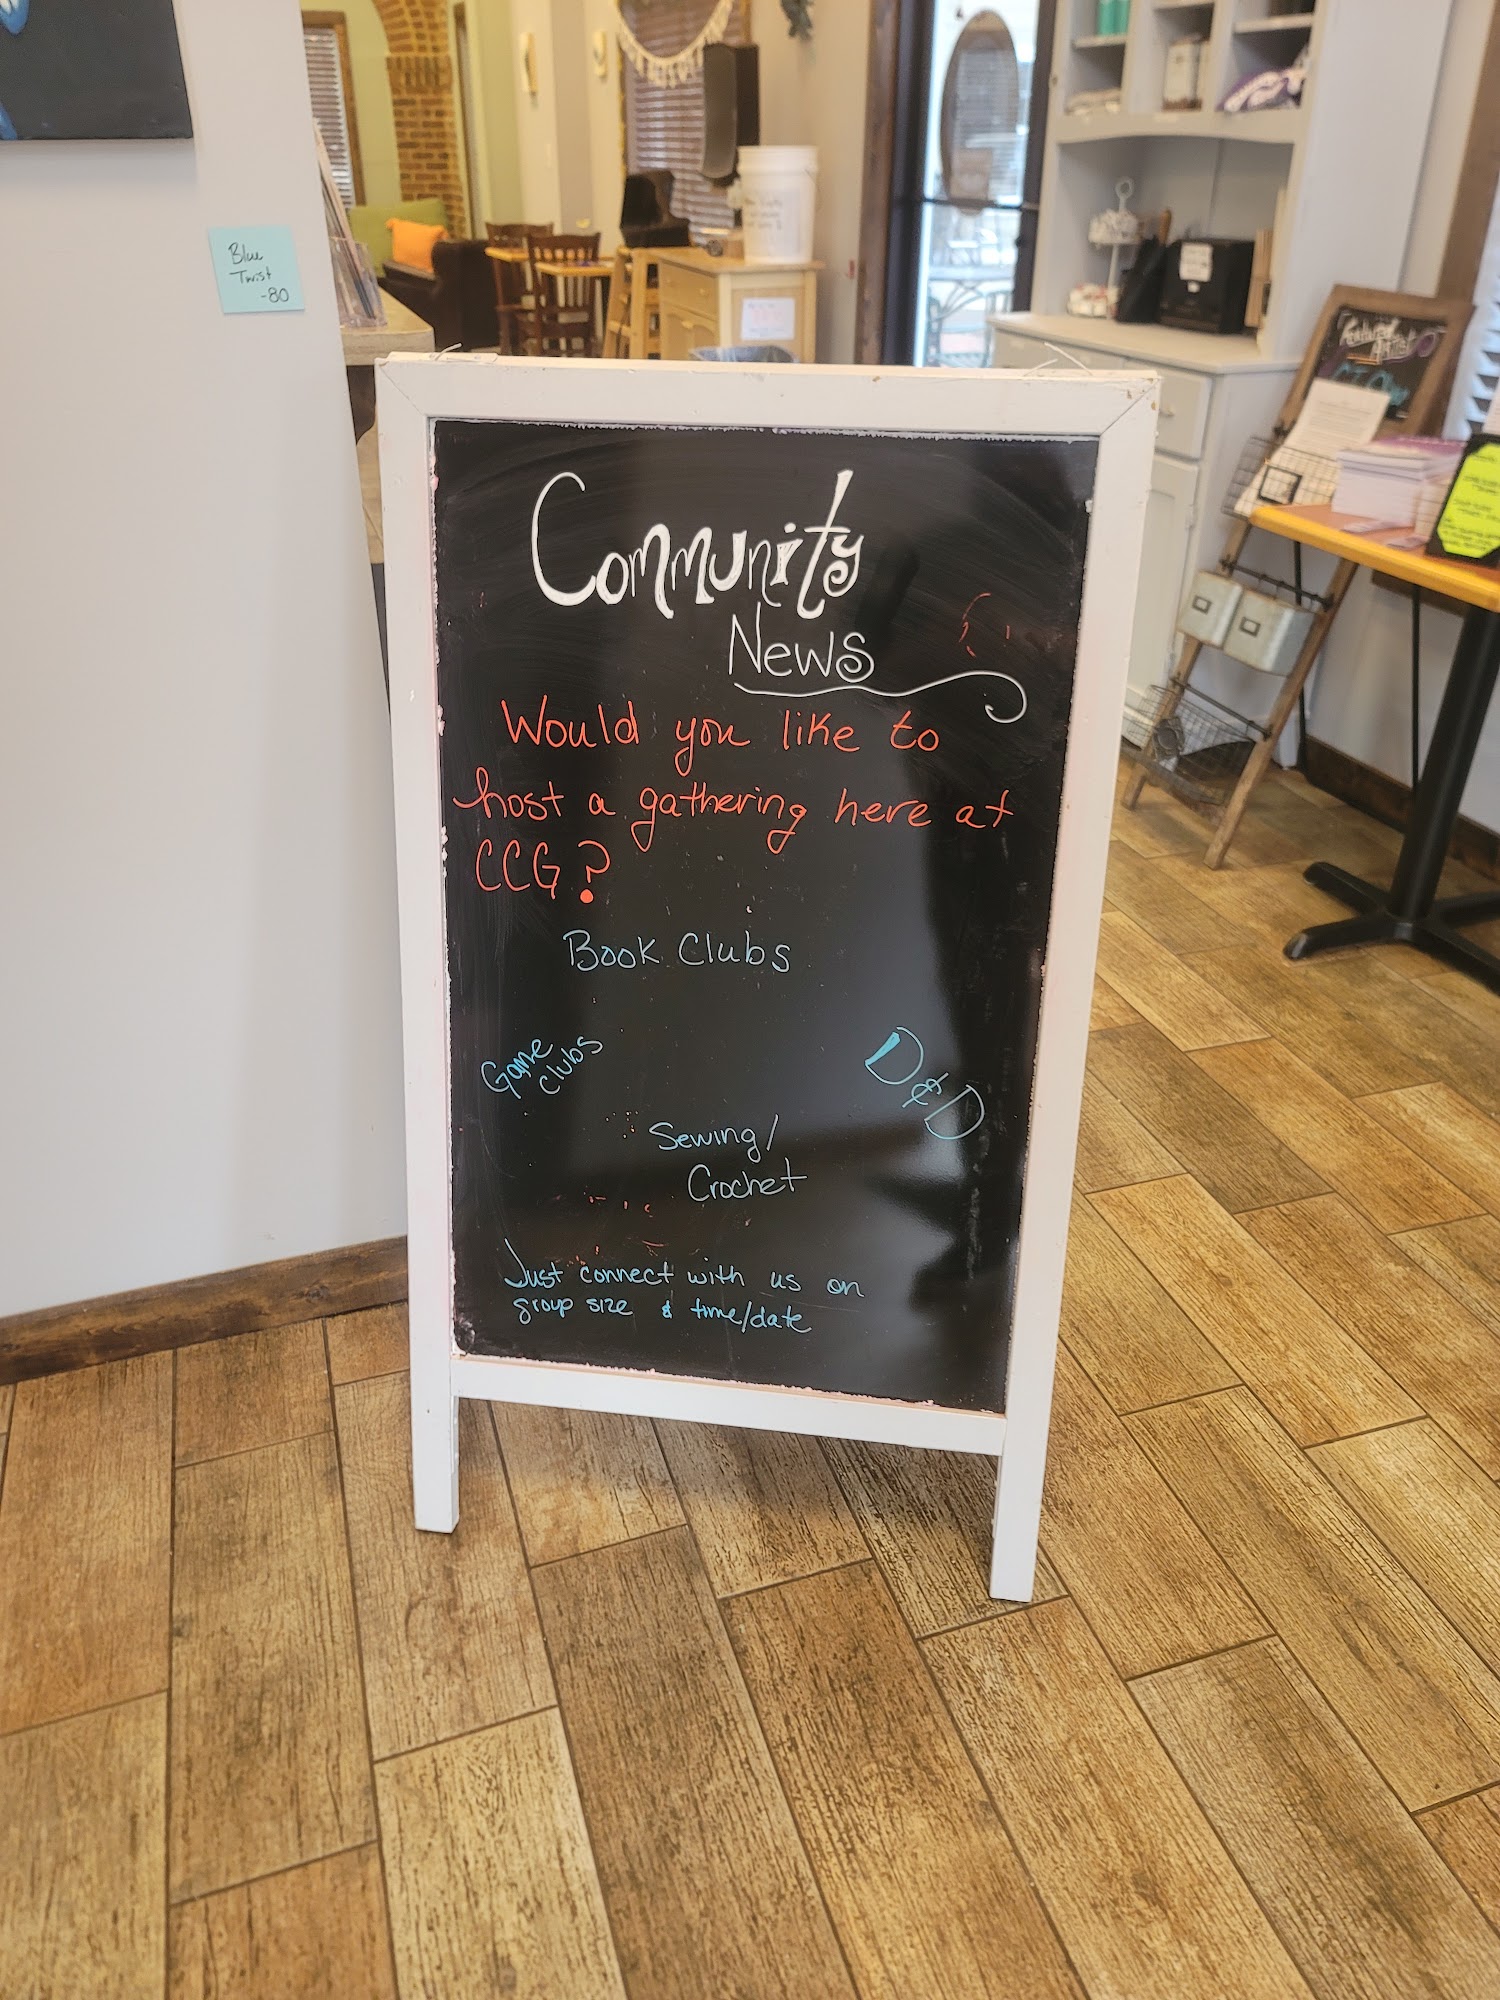 Blue
Twist
-80
Featured
Artist
Community
News
Would you like to
host a gathering here at
CCG?
Book Clubs
Game
Clubs
D&D
Sewing/
Crochet
Just connect with us on
group size & time/date